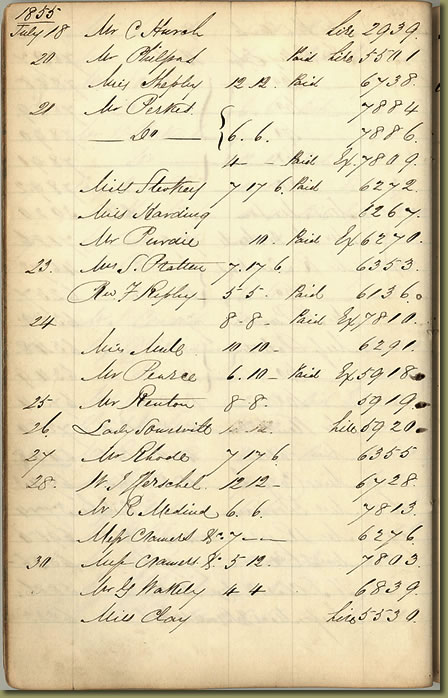 1855
July 18 Mr C Hursh Hire 2939.
20 Mr Philpons Paid Hire 5501
Miss Shepley 12.12. Paid 6738.
21 Mr Perket. 7884
— Do — { 6.6. 7886.
4 — Paid Ex. 7809.
Miss 7 17 6. Paid 6272.
Miss Harding 6267.
Mr Purdie 10. Paid Ex. 6270.
23. Mrs S. Pratten 7.17 6. 6353.
Rev F Ripley — 5 5. Paid 6136.
24 8 - 8 - Paid Ex 7810.
Miss 10 10 - 6291.
Mr Pearce 6.10 - Paid Ex. 5918
25 Mr Renton 8 - 8. 5919.
26. Lady Hire 5920.
27 Mr Rhode 7 17 6 6355
28. W. J. Herschel. 12 12 - 6728.
Mr R. Medina 6.6. 7813.
Messrs Cramers &c 7 — — 6276.
30 Messrs Cramers &c 5 12. 7803.
Mr G Wakely 4 4 6839.
Miss Clay Hire 5530.